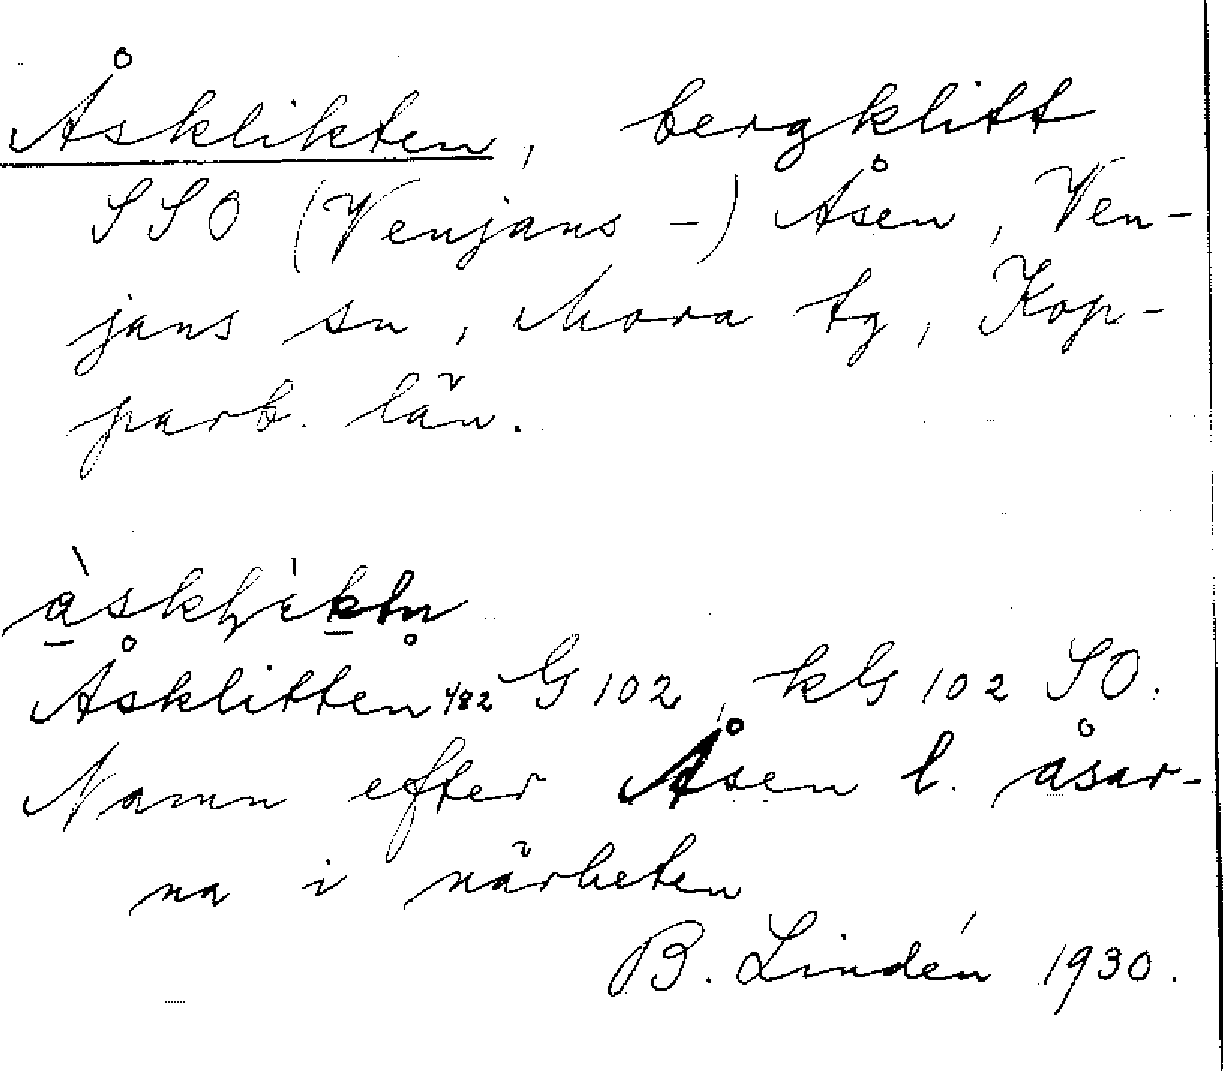 Åsklikten, bergklitt
SSO (Venjans -) Åsen, Ven-
jans sn, Mora tg, Kop-
parb. län.
Åsklitten 482 G 102, kG 102 SO.
Namn efter Åsen l. åsar-
na i närheten
B. Lindén 1930.